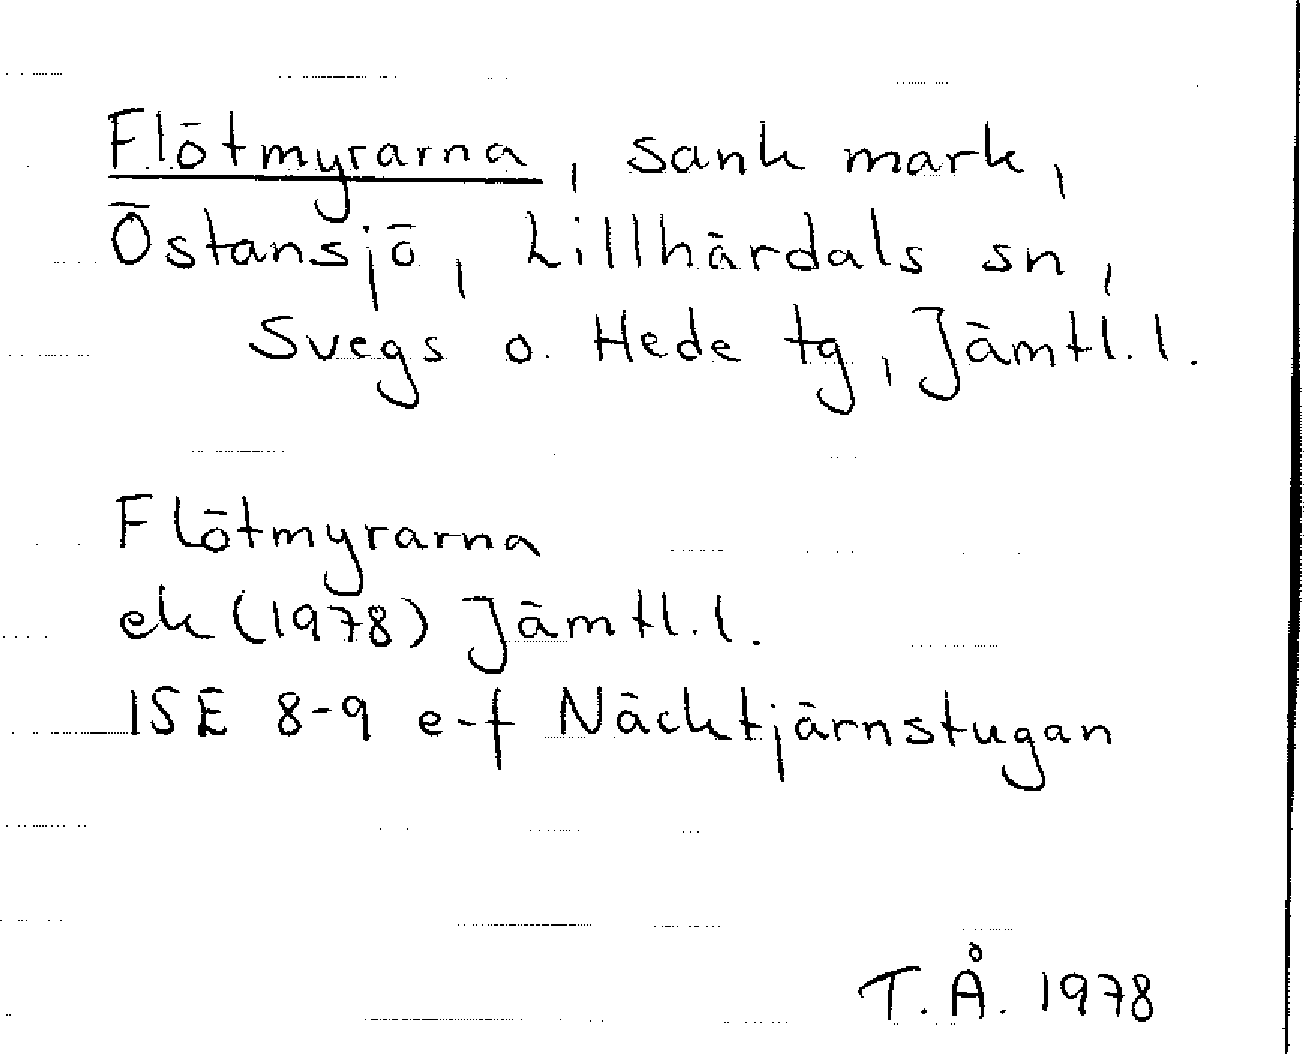 Flötmyrarna, sank mark,
Östansjö, Lillhärdals sn,
Svegs o. Hede tg, Jämtl.l.
Flötmyrarna
ek (1978) Jämtl.l.
15E 8-9 e-f Näcktjärnstugan
T.Å. 1978